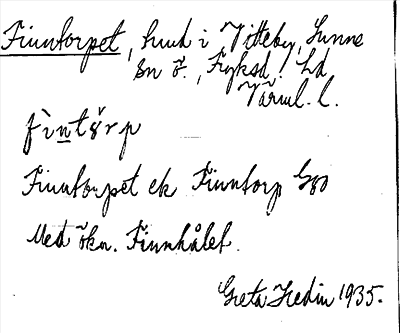 Finntorpet, hmd i Vitteby, Sunne
sn ö., Fryksd. hd
Värml. l.
fìntǒrp
Finntorpet ek Finntorp G80
Med ökn. Finnhålet.
Greta Hedin 1935.